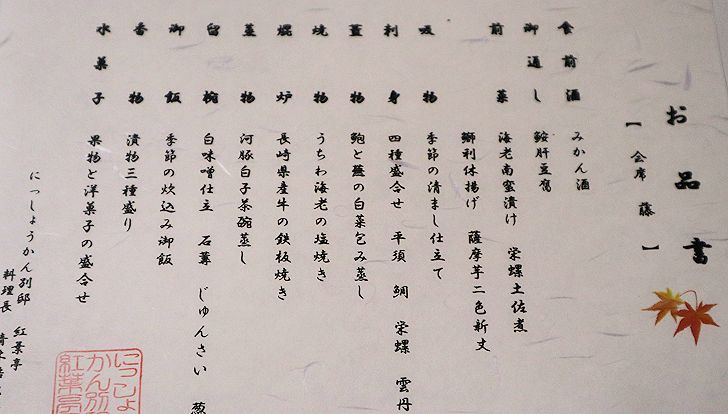 お品書
【会席 藤】
食前酒 みかん酒
御通し 鮟肝豆腐
前菜 海老南蛮漬け 栄螺土佐煮
鰤利休揚げ 薩摩芋二色新丈
吸物 季節の清まし仕立て
刺身 四種盛合せ 平須 鯛 栄螺 雲丹
蓋物 鮑と蕪の白菜包み蒸し
焼物 うちわ海老の塩焼き
焜炉 長崎県産牛の鉄板焼き
蒸物 河豚白子茶碗蒸し
留椀 白味噌仕立 石蓴 じゅんさい 葱
御飯 季節の炊込み御飯
香物 漬物三種盛り
水菓子 果物と洋菓子の盛合せ
にっしょうかん別邸 紅葉亭
料理長
にっしょ
かん別
紅葉亭